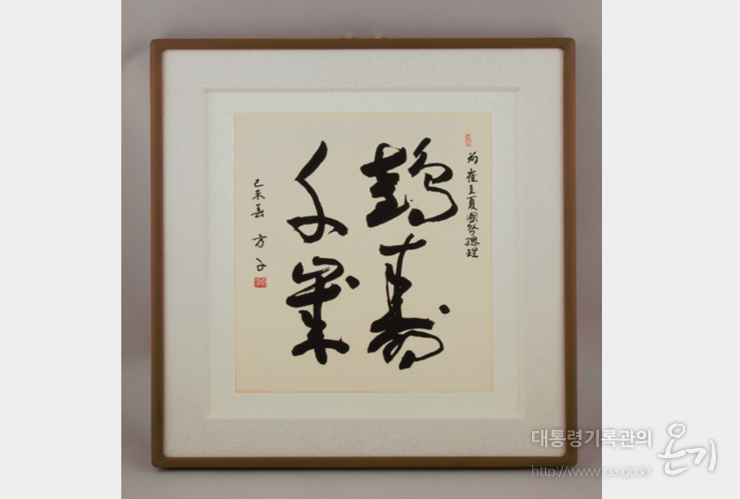 為 崔圭夏國務總理
鶴壽
千歲
己未春 方子
대통령기록관의 온기
http://www.pa.go.kr